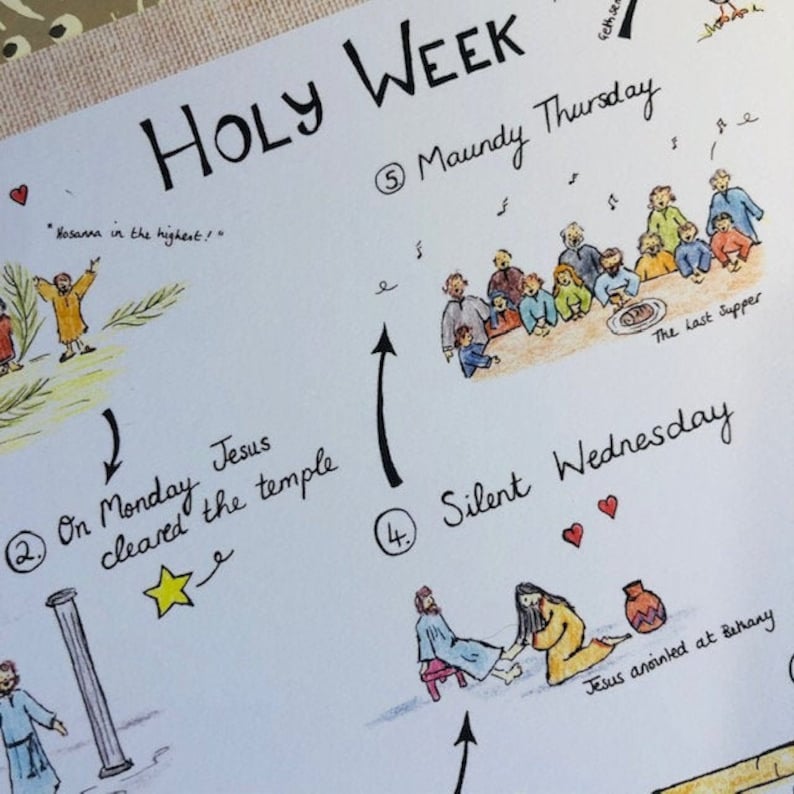 HOLY WEEK
"Hosanna in the highest!"
2. On Monday Jesus
cleared the temple
5. Maundy Thursday
The Last Supper
4. Silent Wednesday
Jesus anointed at Bethany